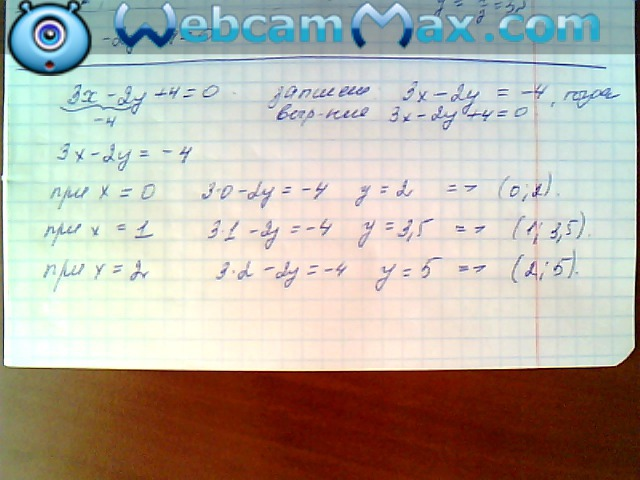 WebcamMax.com
3x - 2y + 4 = 0 запишем 3x - 2y = -4,
-4 3x - 2y + 4 = 0
3x - 2y = -4
при x = 0 3·0 - 2y = -4 y = 2 => (0; 2).
при x = 1 3·1 - 2y = -4 y = 3,5 => (1; 3,5).
при x = 2 3·2 - 2y = -4 y = 5 => (2; 5).